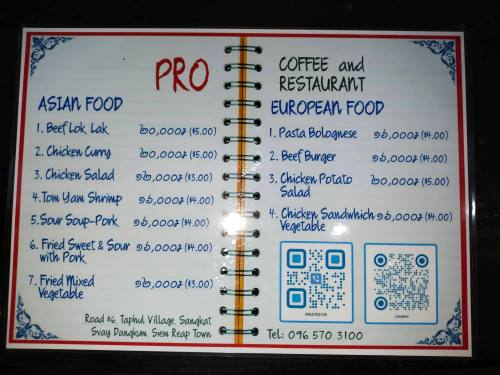 PRO
ASIAN FOOD
1. Beef Lok Lak ២០,០០០៛ ($5.00)
2. Chicken Curry ២០,០០០៛ ($5.00)
3. Chicken Salad ១២,០០០៛ ($3.00)
4. Tom Yam Shrimp ១៦,០០០៛ ($4.00)
5. Sour Soup-Pork ១៦,០០០៛ ($4.00)
6. Fried Sweet & Sour ១៦,០០០៛ ($4.00)
with Pork
7. Fried Mixed ១២,០០០៛ ($3.00)
Vegetable
Road #6, Taphul Village, Sangkat
Svay Dangkum, Siem Reap Town
COFFEE and
RESTAURANT
EUROPEAN FOOD
1. Pasta Bolognese ១៦,០០០៛ ($4.00)
2. Beef Burger ១៦,០០០៛ ($4.00)
3. Chicken Potato ២០,០០០៛ ($5.00)
Salad
4. Chicken Sandwhich ១៦,០០០៛ ($4.00)
Vegetable
0965703100
Location
Tel: 096 570 3100